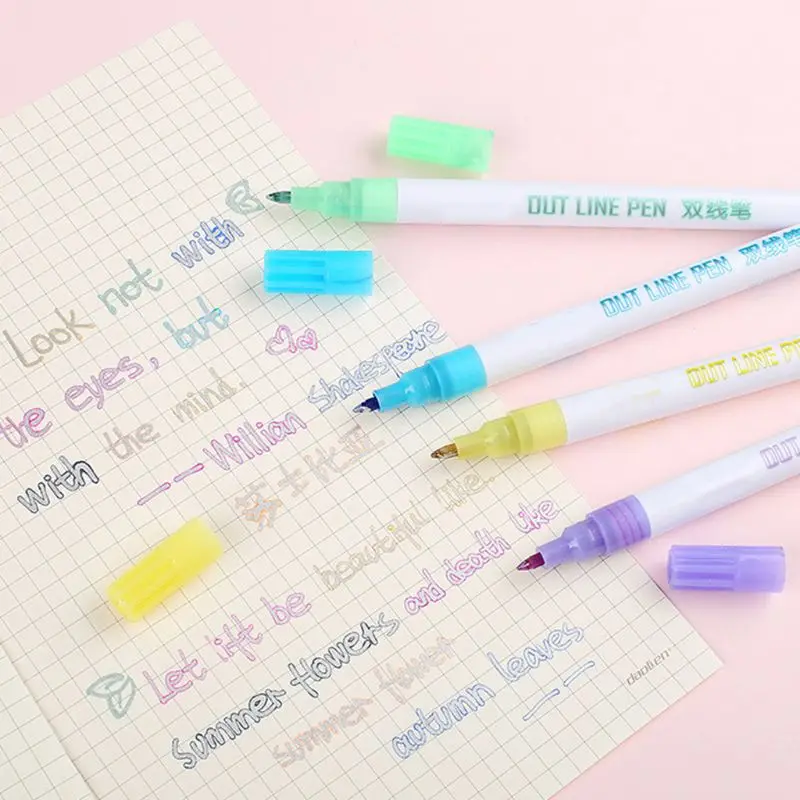 Look not with
the eyes, but
with the mind.
——Willian Shakespeare
莎士比亚
Let lift be beautiful like
summer flowers and death like
summer flower
autumn leaves
daolien
OUT LINE PEN 双线笔
OUT LINE PEN 双线笔
OUT LINE PE
OUT